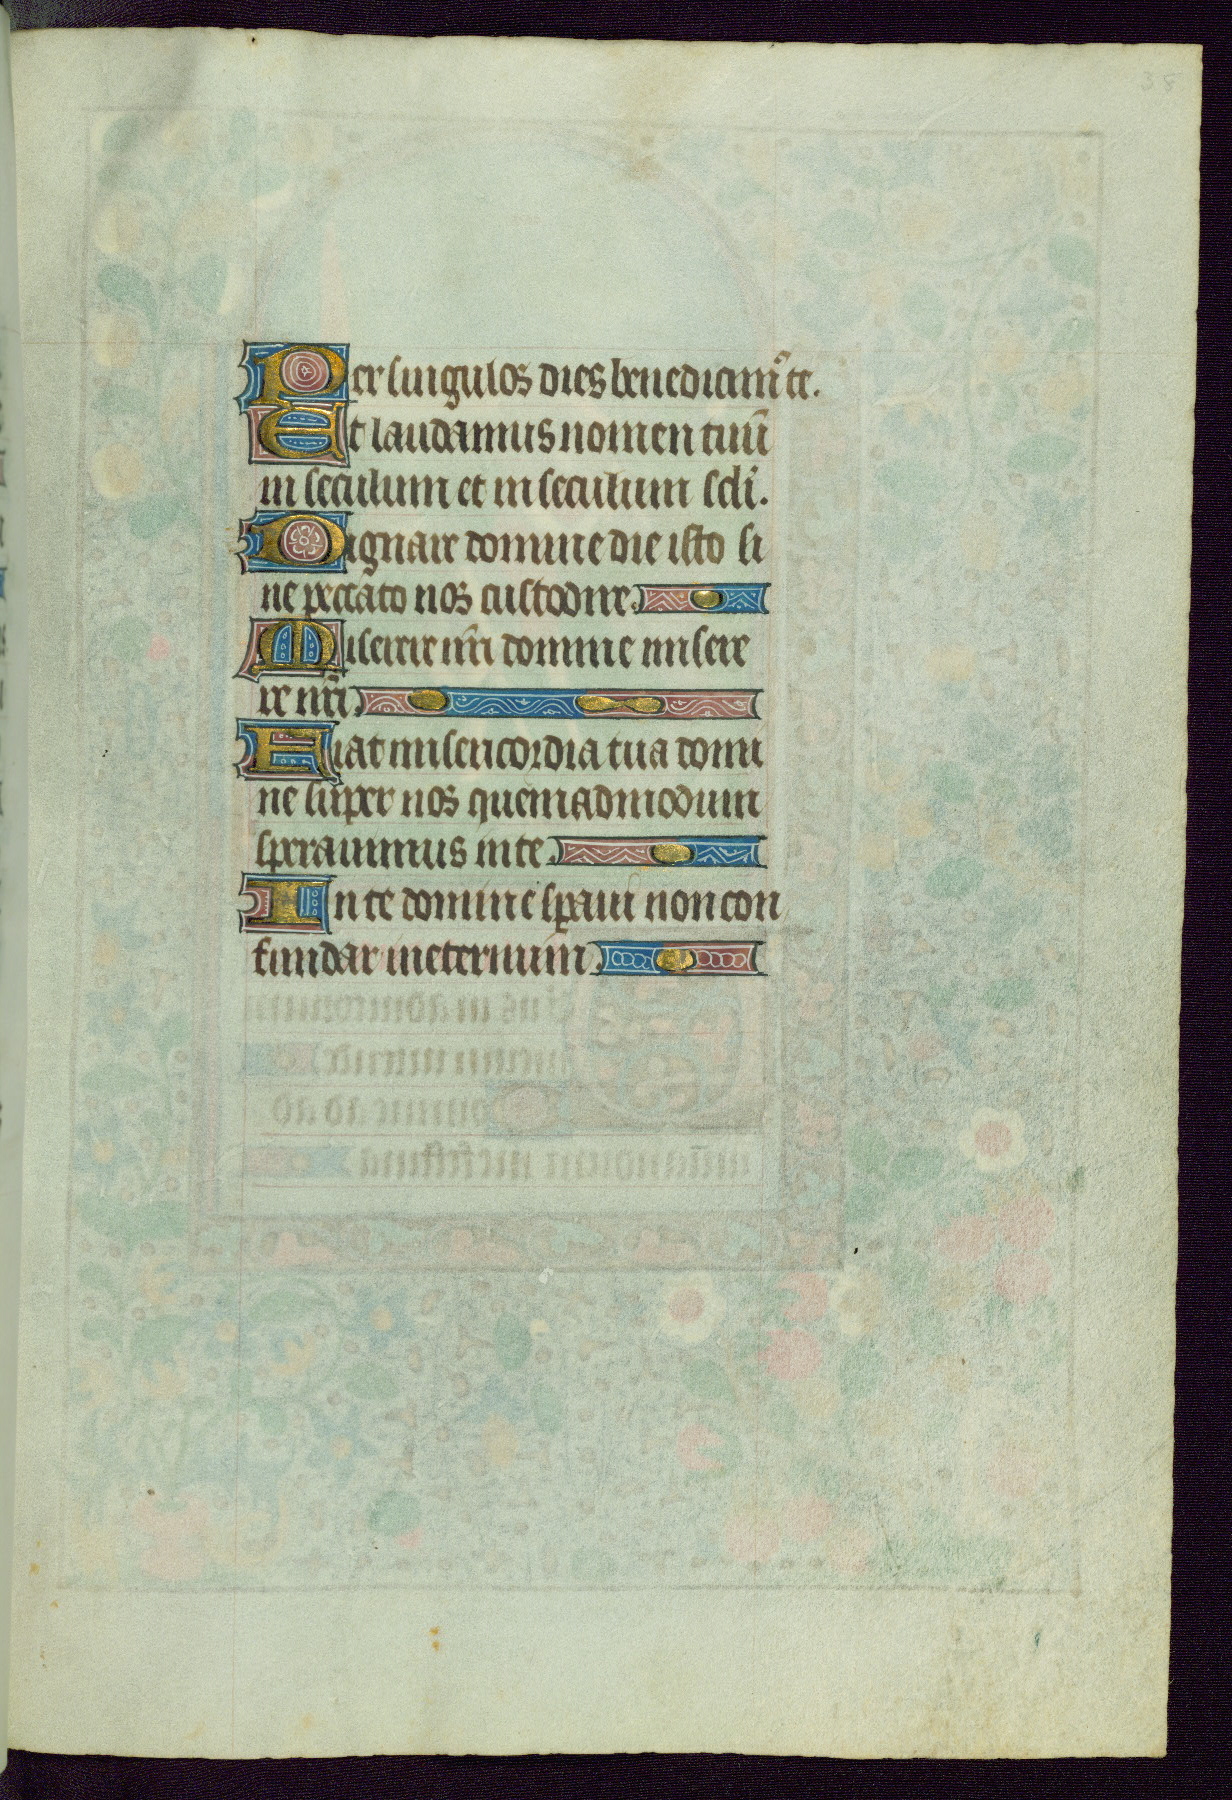 38
Per singulos dies benedicim⁹ te.
Et laudamus nomen tuū
in seculum et in seculum scli̅.
Dignare domine die isto si
ne peccato nos custodire.
Miserere nr̅i domine misere
re nr̅i.
Fiat misericordia tua domi
ne super nos quemadmodum
sperauimus in te.
In te domine sꝑaui non con
fundar in eternum.